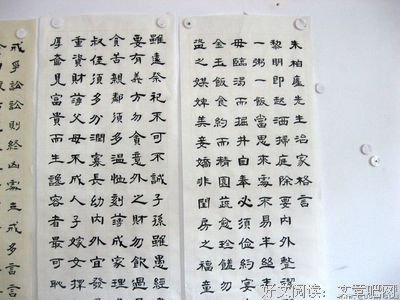 朱柏廬先生治家格言
黎明即起洒掃庭除要内外整
一粥一飯當思來處不易半丝
毋臨渴而掘井自奉必須儉約宴
金玉飯食約而精園蔬愈珍饈勿
盜之媒婢美妾嬌非閨房之福童
雖遠祭祀不可不誠子孫雖愚經
要有義方勿貪意外之財勿飲過量
貧苦親鄰須多温恤刻薄成家理
叔侄須多分潤寡長幼内外宜
重資財薄父母不成人子嫁女擇
厚奩見富貴而生諂容者最可恥
戒爭訟訟則終凶處世戒多言言
好文阅读：文章吧网